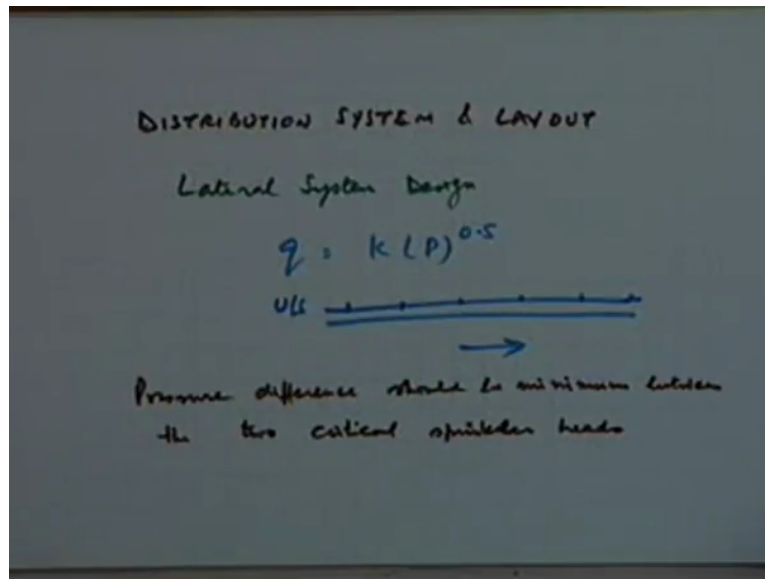 DISTRIBUTION SYSTEM & LAYOUT
Lateral System Design
q = K (P)^0.5
U/S
Pressure difference should be minimum between
the two critical sprinkler heads